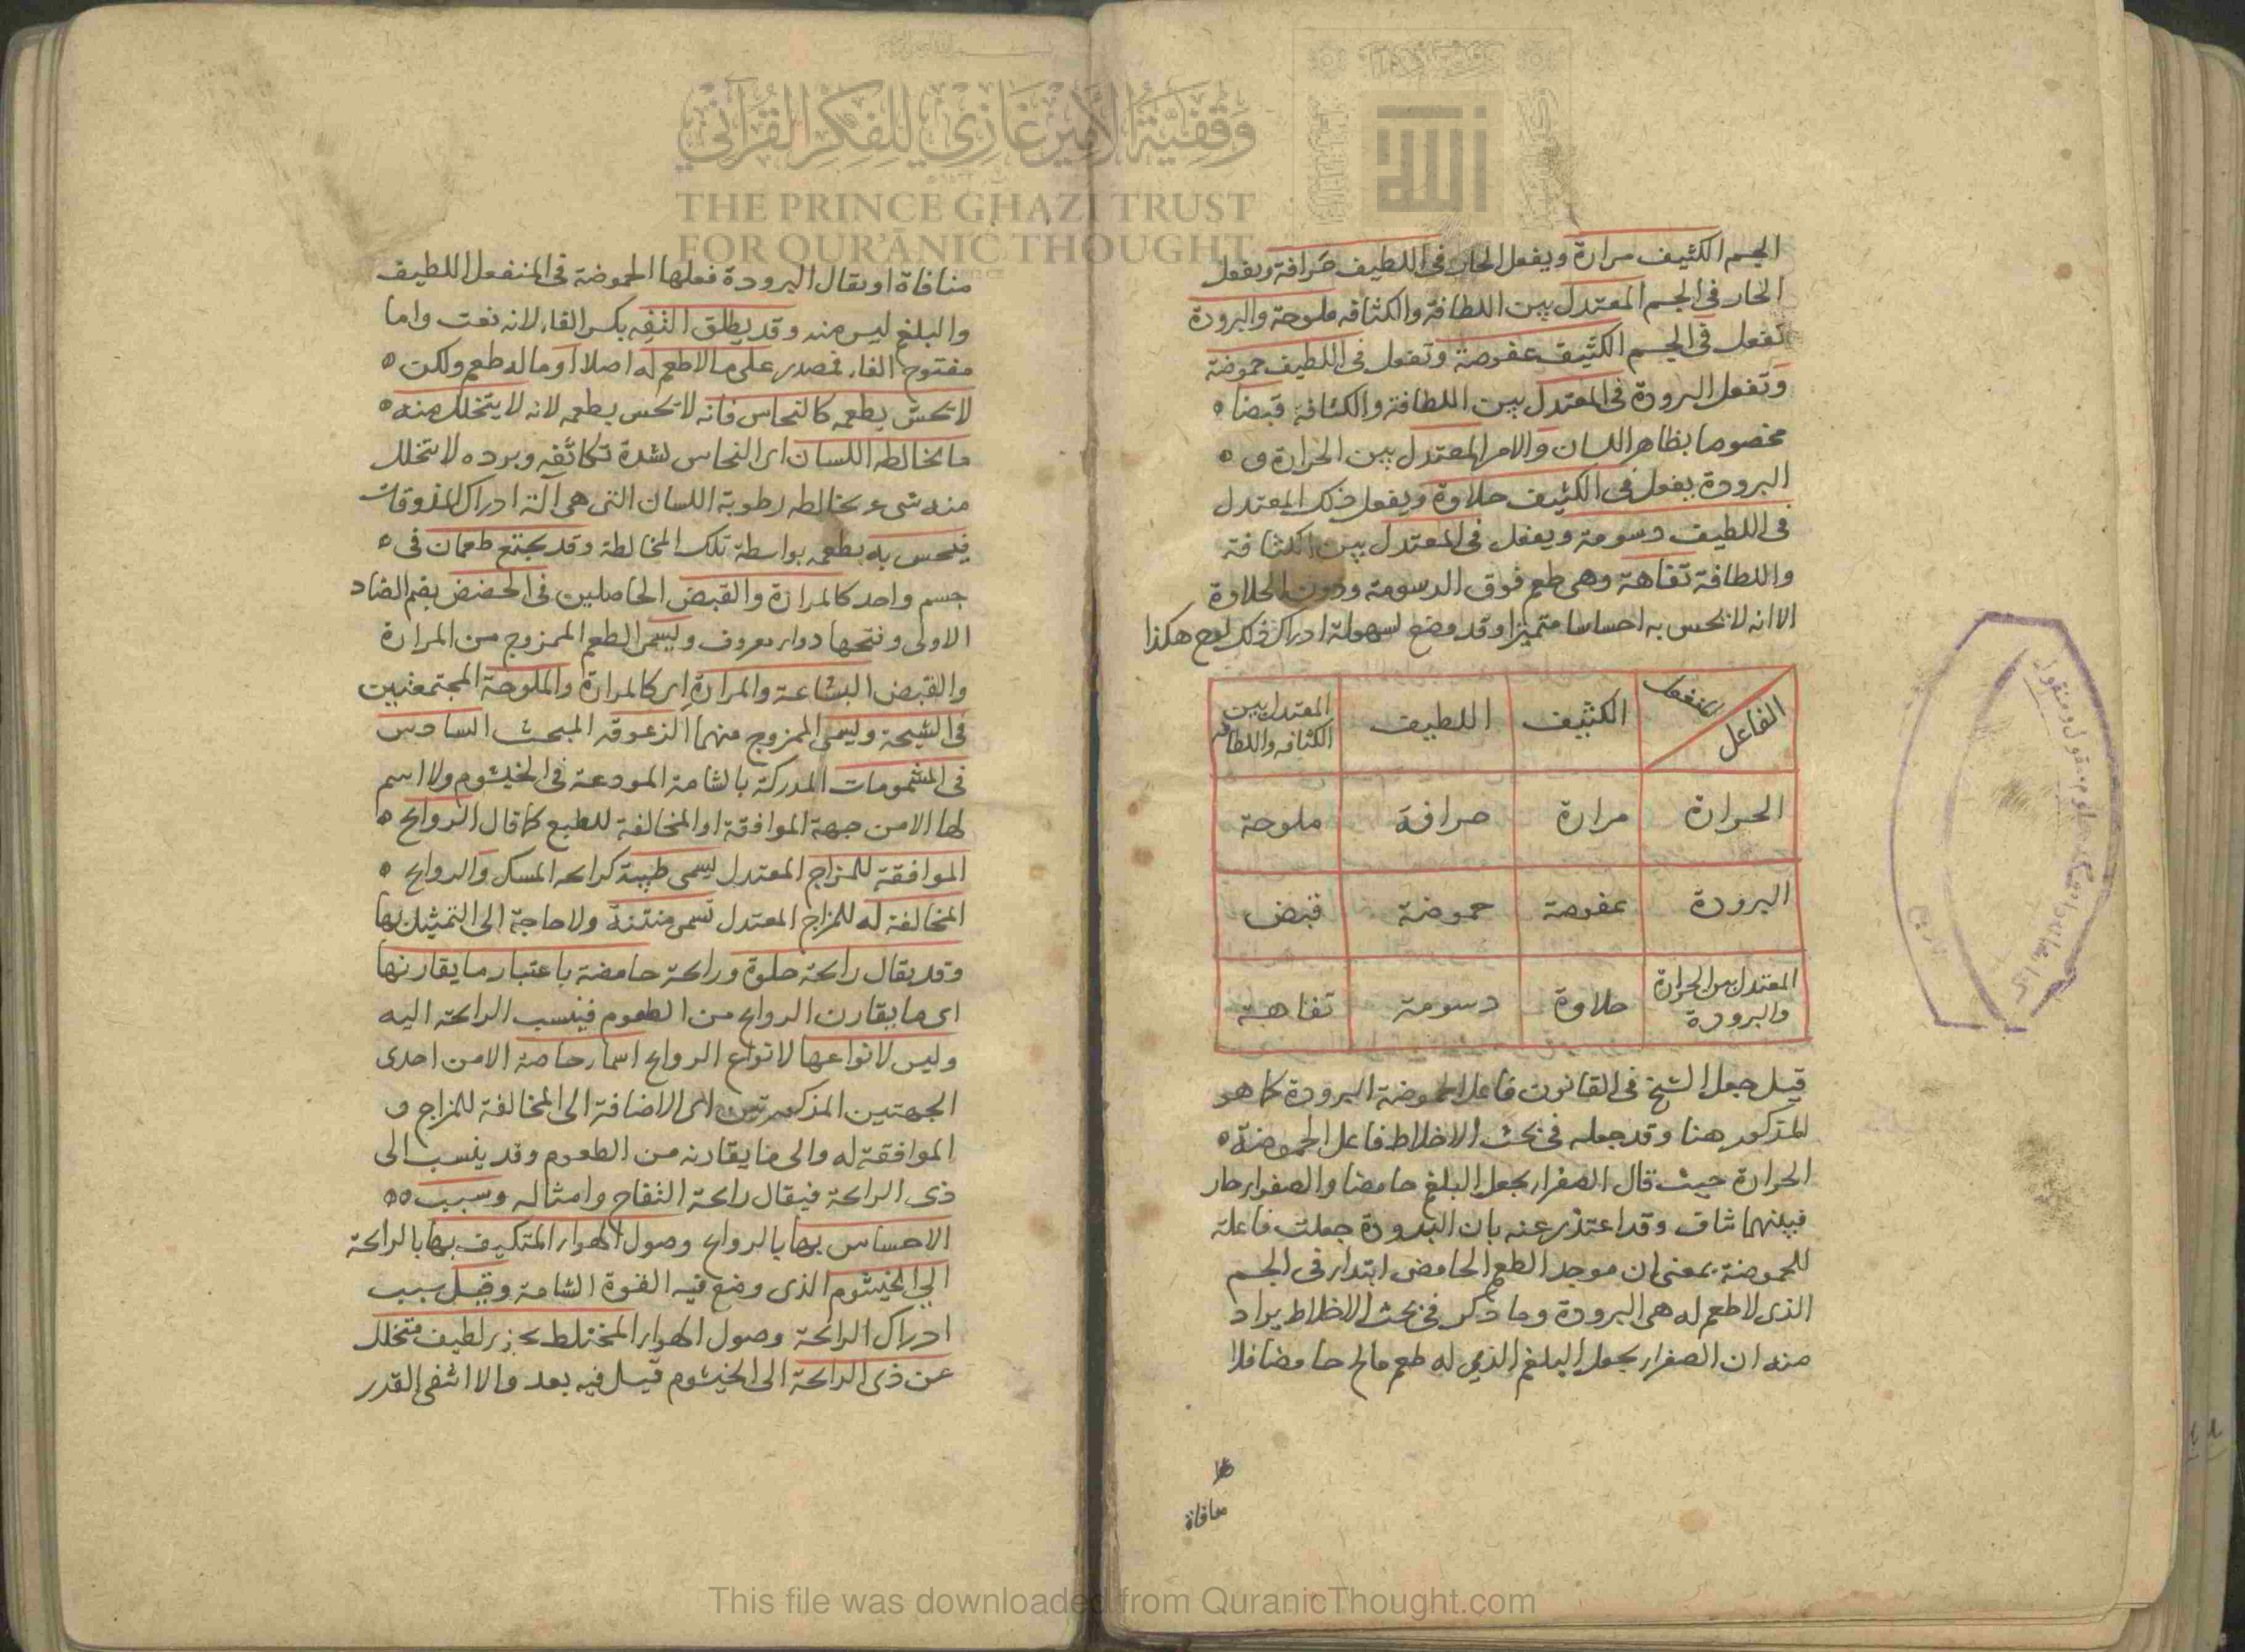 وقفية الأمير غازي للفكر القرآني
THE PRINCE GHAZI TRUST
FOR QUR'ĀNIC THOUGHT
الله
الجسم الكثيف مرارة ويفعل الحار في اللطيف حرافة ويفعل
الحار في الجسم المعتدل بين اللطافة والكثافه ملوحة والبرودة
تفعل في الجسم الكثيف عفوصة وتفعل في اللطيف حموضة
وتفعل البرودة في المعتدل بين اللطافة والكثافة قبضا
مخصوصا بظاهر اللسان والامر المعتدل بين الحرارة و
البرودة يفعل في الكثيف حلاوة ويفعل ذلك المعتدل
في اللطيف دسومة ويفعل في المعتدل بين الكثافة
واللطافة تفاهة وهي طعم فوق الدسومة ودون الحلاوة
الا انه لا يحس به احساسا متميزا وقد وضع لسهولة ادراك ذلك لوح هكذا
المنفعل الفاعل الكثيف اللطيف المعتدل بين الكثافه واللطافه
الحرارة مرارة حرافة ملوحة
البرودة عفوصة حموضة قبض
المعتدل بين الحرارة والبرودة حلاوة دسومة تفاهة
قيل جعل الشيخ في القانون فاعل الحموضة البرودة كما هو
المذكور هنا وقد جعله في بحث الاخلاط فاعل الحموضة
الحرارة حيث قال الصفراء يجعل البلغم حامضا والصفراء حار
فبينهما تناف وقد اعتذر عنه بان البرودة جعلت فاعلة
للحموضة بمعنى ان موجد الطعم الحامض ابتداء في الجسم
الذي لا طعم له هي البرودة وما ذكر في بحث الاخلاط يراد
منه ان الصفراء يجعل البلغم الذي له طعم مالح حامضا فلا
منافاة
منافاة او يقال البرودة فعلها الحموضة في المنفعل اللطيف
والبلغم ليس منه وقد يطلق التفه بكسر الفاء لانه نعت واما
مفتوح الفاء فمصدر على ما لا طعم له اصلا او ما له طعم ولكن
لا يحس بطعمه كالنحاس فانه لا يحس بطعمه لانه لا يتحلل منه
ما يخالطه اللسان اي النحاس لشدة تكاثفه وبرده لا يتحلل
منه شيء يخالطه رطوبة اللسان التي هي آلة ادراك المذوقات
فيحس به بطعمه بواسطة تلك المخالطة وقد يجتمع طعمان في
جسم واحد كالمرارة والقبض الحاصلين في الحضض بضم الضاد
الاولى وفتحها دواء معروف ويسمى الطعم الممزوج من المرارة
والقبض البشاعة والمرارة اي كالمرارة والملوحة المجتمعتين
في الشيحة ويسمى الممزوج منهما الزعوقه المبحث السادس
في المشمومات المدركة بالشامة المودعة في الخيشوم ولا اسم
لها الا من جهة الموافقة او المخالفة للطبع كما قال الروايح
الموافقة للمزاج المعتدل يسمى طيبة كرائحه المسك والروايح
المخالفة له للمزاج المعتدل تسمى منتنة ولا حاجة الى التمثيل بها
وقد يقال رائحة حلوة ورائحة حامضة باعتبار ما يقارنها
اي ما يقارن الروايح من الطعوم فينسب الرائحة اليه
وليس لانواعها لانواع الروايح اسماء خاصة الا من احدى
الجهتين المذكورتين اي الاضافة الى المخالفة للمزاج و
الموافقة له والى ما يقارنه من الطعوم وقد ينسب الى
ذي الرائحة فيقال رائحة التفاح وامثاله وسبب
الاحساس بها بالروايح وصول الهواء المتكيف بها بالرائحة
الى الخيشوم الذي وضع فيه القوة الشامة وقيل سبب
ادراك الرائحة وصول الهواء المختلط بجزء لطيف متحلل
عن ذي الرائحة الى الخيشوم قيل فيه بعد والا انتفى القدر
This file was downloaded from QuranicThought.com